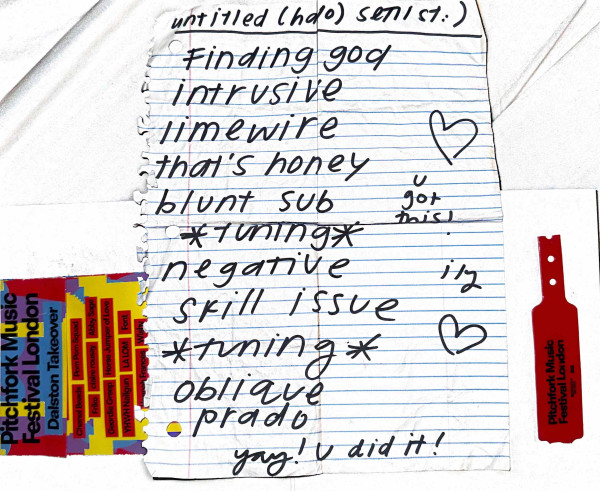 untitled (halo) setlist:)
Finding god
intrusive
limewire
that's honey
blunt sub
u
got
this!
*tuning*
negative
ily
skill issue
*tuning*
oblique
prado
yay! u did it!
Pitchfork Music
Festival London
Dalston Takeover
Pitchfork Music
Festival London